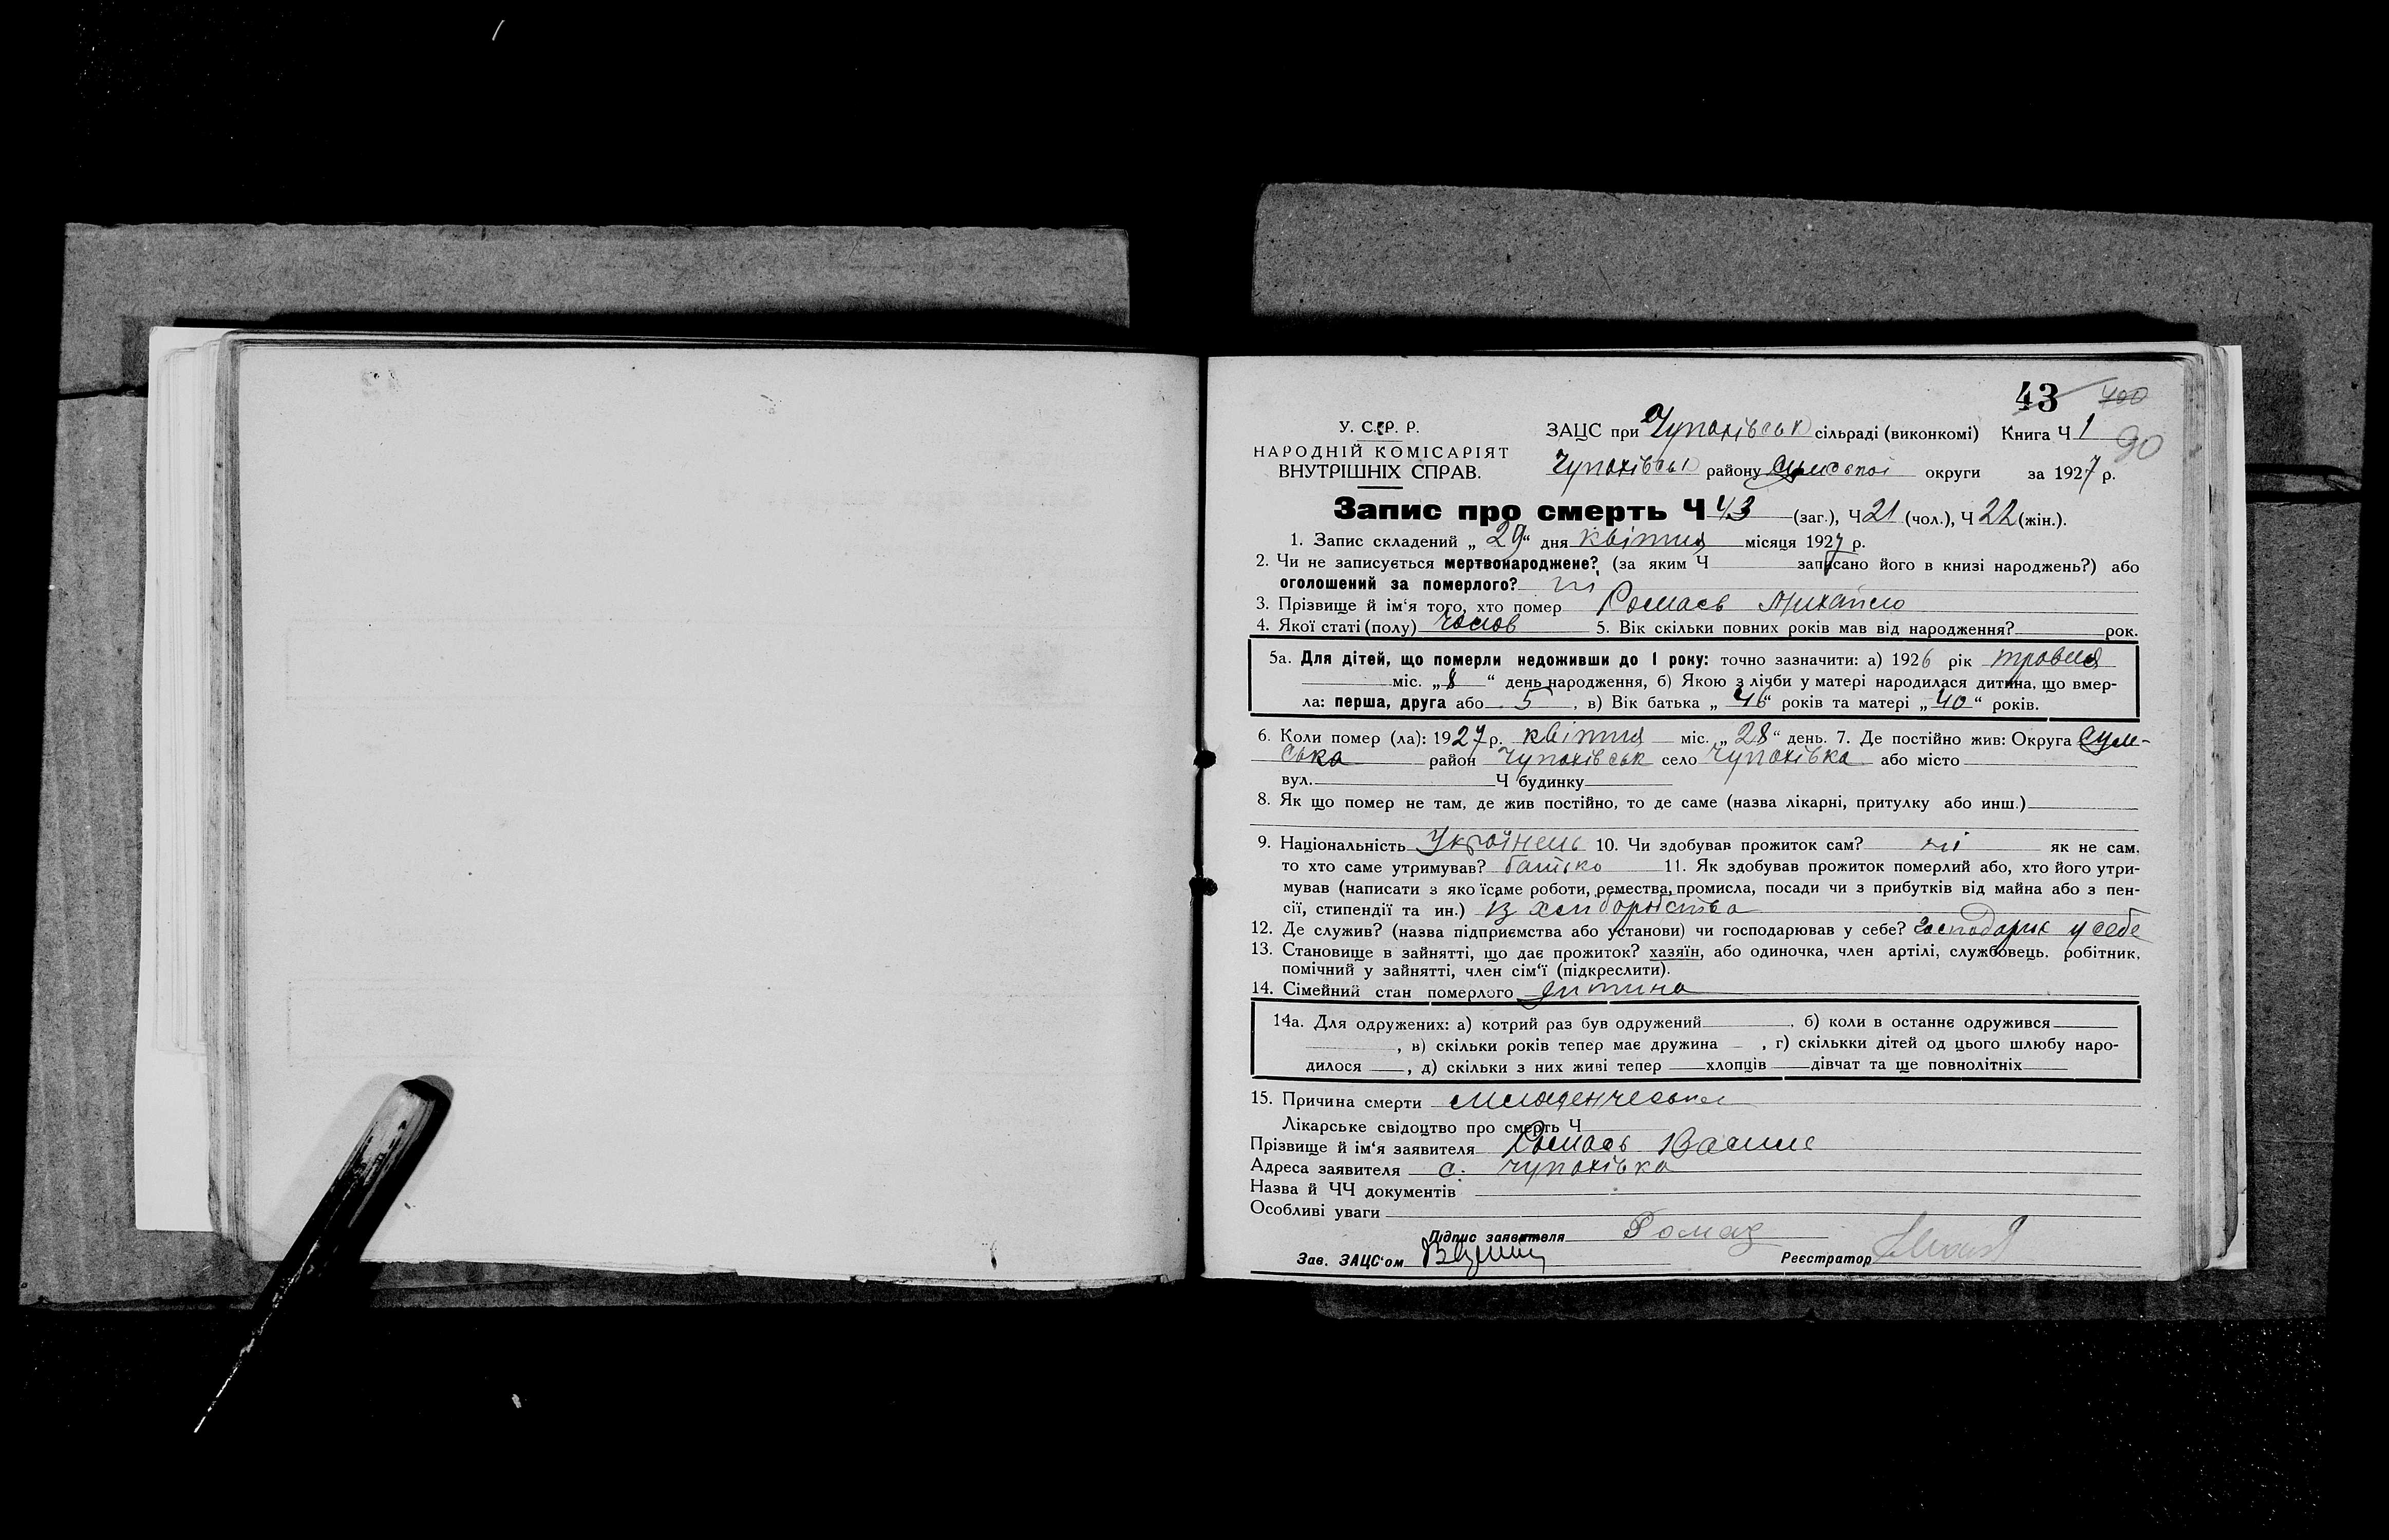 43 400
90
У. С. Р. Р.
НАРОДНІЙ КОМІСАРІЯТ
ВНУТРІШНІХ СПРАВ.
ЗАЦС при Чупахівськ сільраді (виконкомі) Книга Ч 1
Чупахівськ району Сумської округи за 1927 р.
Запис про смерть Ч 43 (заг.), Ч 21 (чол.), Ч 22 (жін.).
1. Запис складений „ 29 “ дня квітня місяця 1927 р.
2. Чи не записується мертвонароджене? (за яким Ч записано його в книзі народжень?) або
оголошений за померлого? ні
3. Прізвище й ім‘я того, хто помер Ромась Михайло
4. Якої статі (полу) чолов 5. Вік скільки повних років мав від народження? рок.
5а. Для дітей, що померли недоживши до 1 року: точно зазначити: а) 1926 рік травня
міс. „ 8 “ день народження, б) Якою з лічби у матері народилася дитина, що вмер-
ла: перша, друга або 5, в) Вік батька „ 46 “ років та матері „ 40 “ років.
6. Коли помер (ла): 1927 р. квітня міс. „ 28 “ день. 7. Де постійно жив: Округа Сум-
ська район Чупахівськ село Чупахівка або місто
вул. Ч будинку
8. Як що помер не там, де жив постійно, то де саме (назва лікарні, притулку або инш.)
9. Національність Українець 10. Чи здобував прожиток сам? ні як не сам,
то хто саме утримував? батько 11. Як здобував прожиток померлий або, хто його утри-
мував (написати з яко їсаме роботи, ремества, промисла, посади чи з прибутків від майна або з пен-
сії, стипендії та ин.) із хліборобства
12. Де служив? (назва підприємства або установи) чи господарював у себе? господарює у себе
13. Становище в зайнятті, що дає прожиток? хазяїн, або одиночка, член артілі, службовець, робітник,
помічний у зайнятті, член сім‘ї (підкреслити).
14. Сімейний стан померлого дитина
14а. Для одружених: а) котрий раз був одружений , б) коли в останнє одружився
, в) скільки років тепер має дружина , г) скількки дітей од цього шлюбу наро-
дилося , д) скільки з них живі тепер хлопців дівчат та ще повнолітніх
15. Причина смерти
Лікарське свідоцтво про смерть Ч
Прізвище й ім‘я заявителя Ромась Василь
Адреса заявителя с. Чупахівка
Назва й ЧЧ документів
Особливі уваги
Підпис заявителя Ромаз
Зав. ЗАЦС‘ом Реєстратор